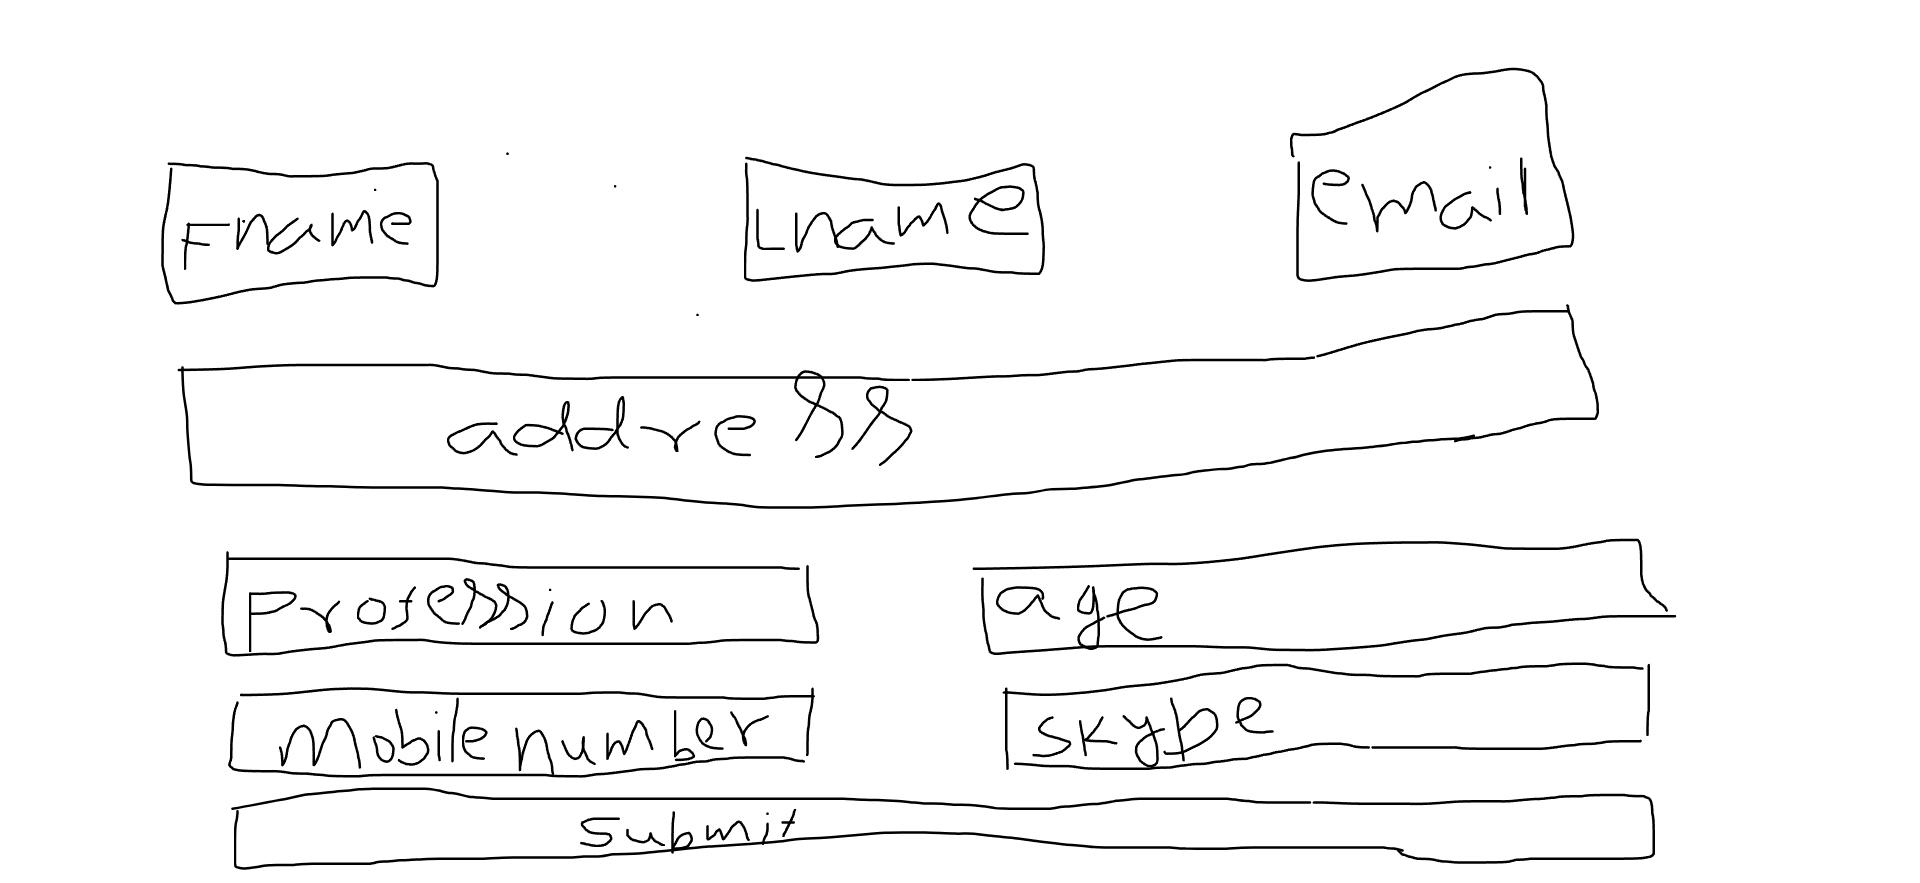 Fname Lname email
address
Profession age
Mobile number skype
Submit